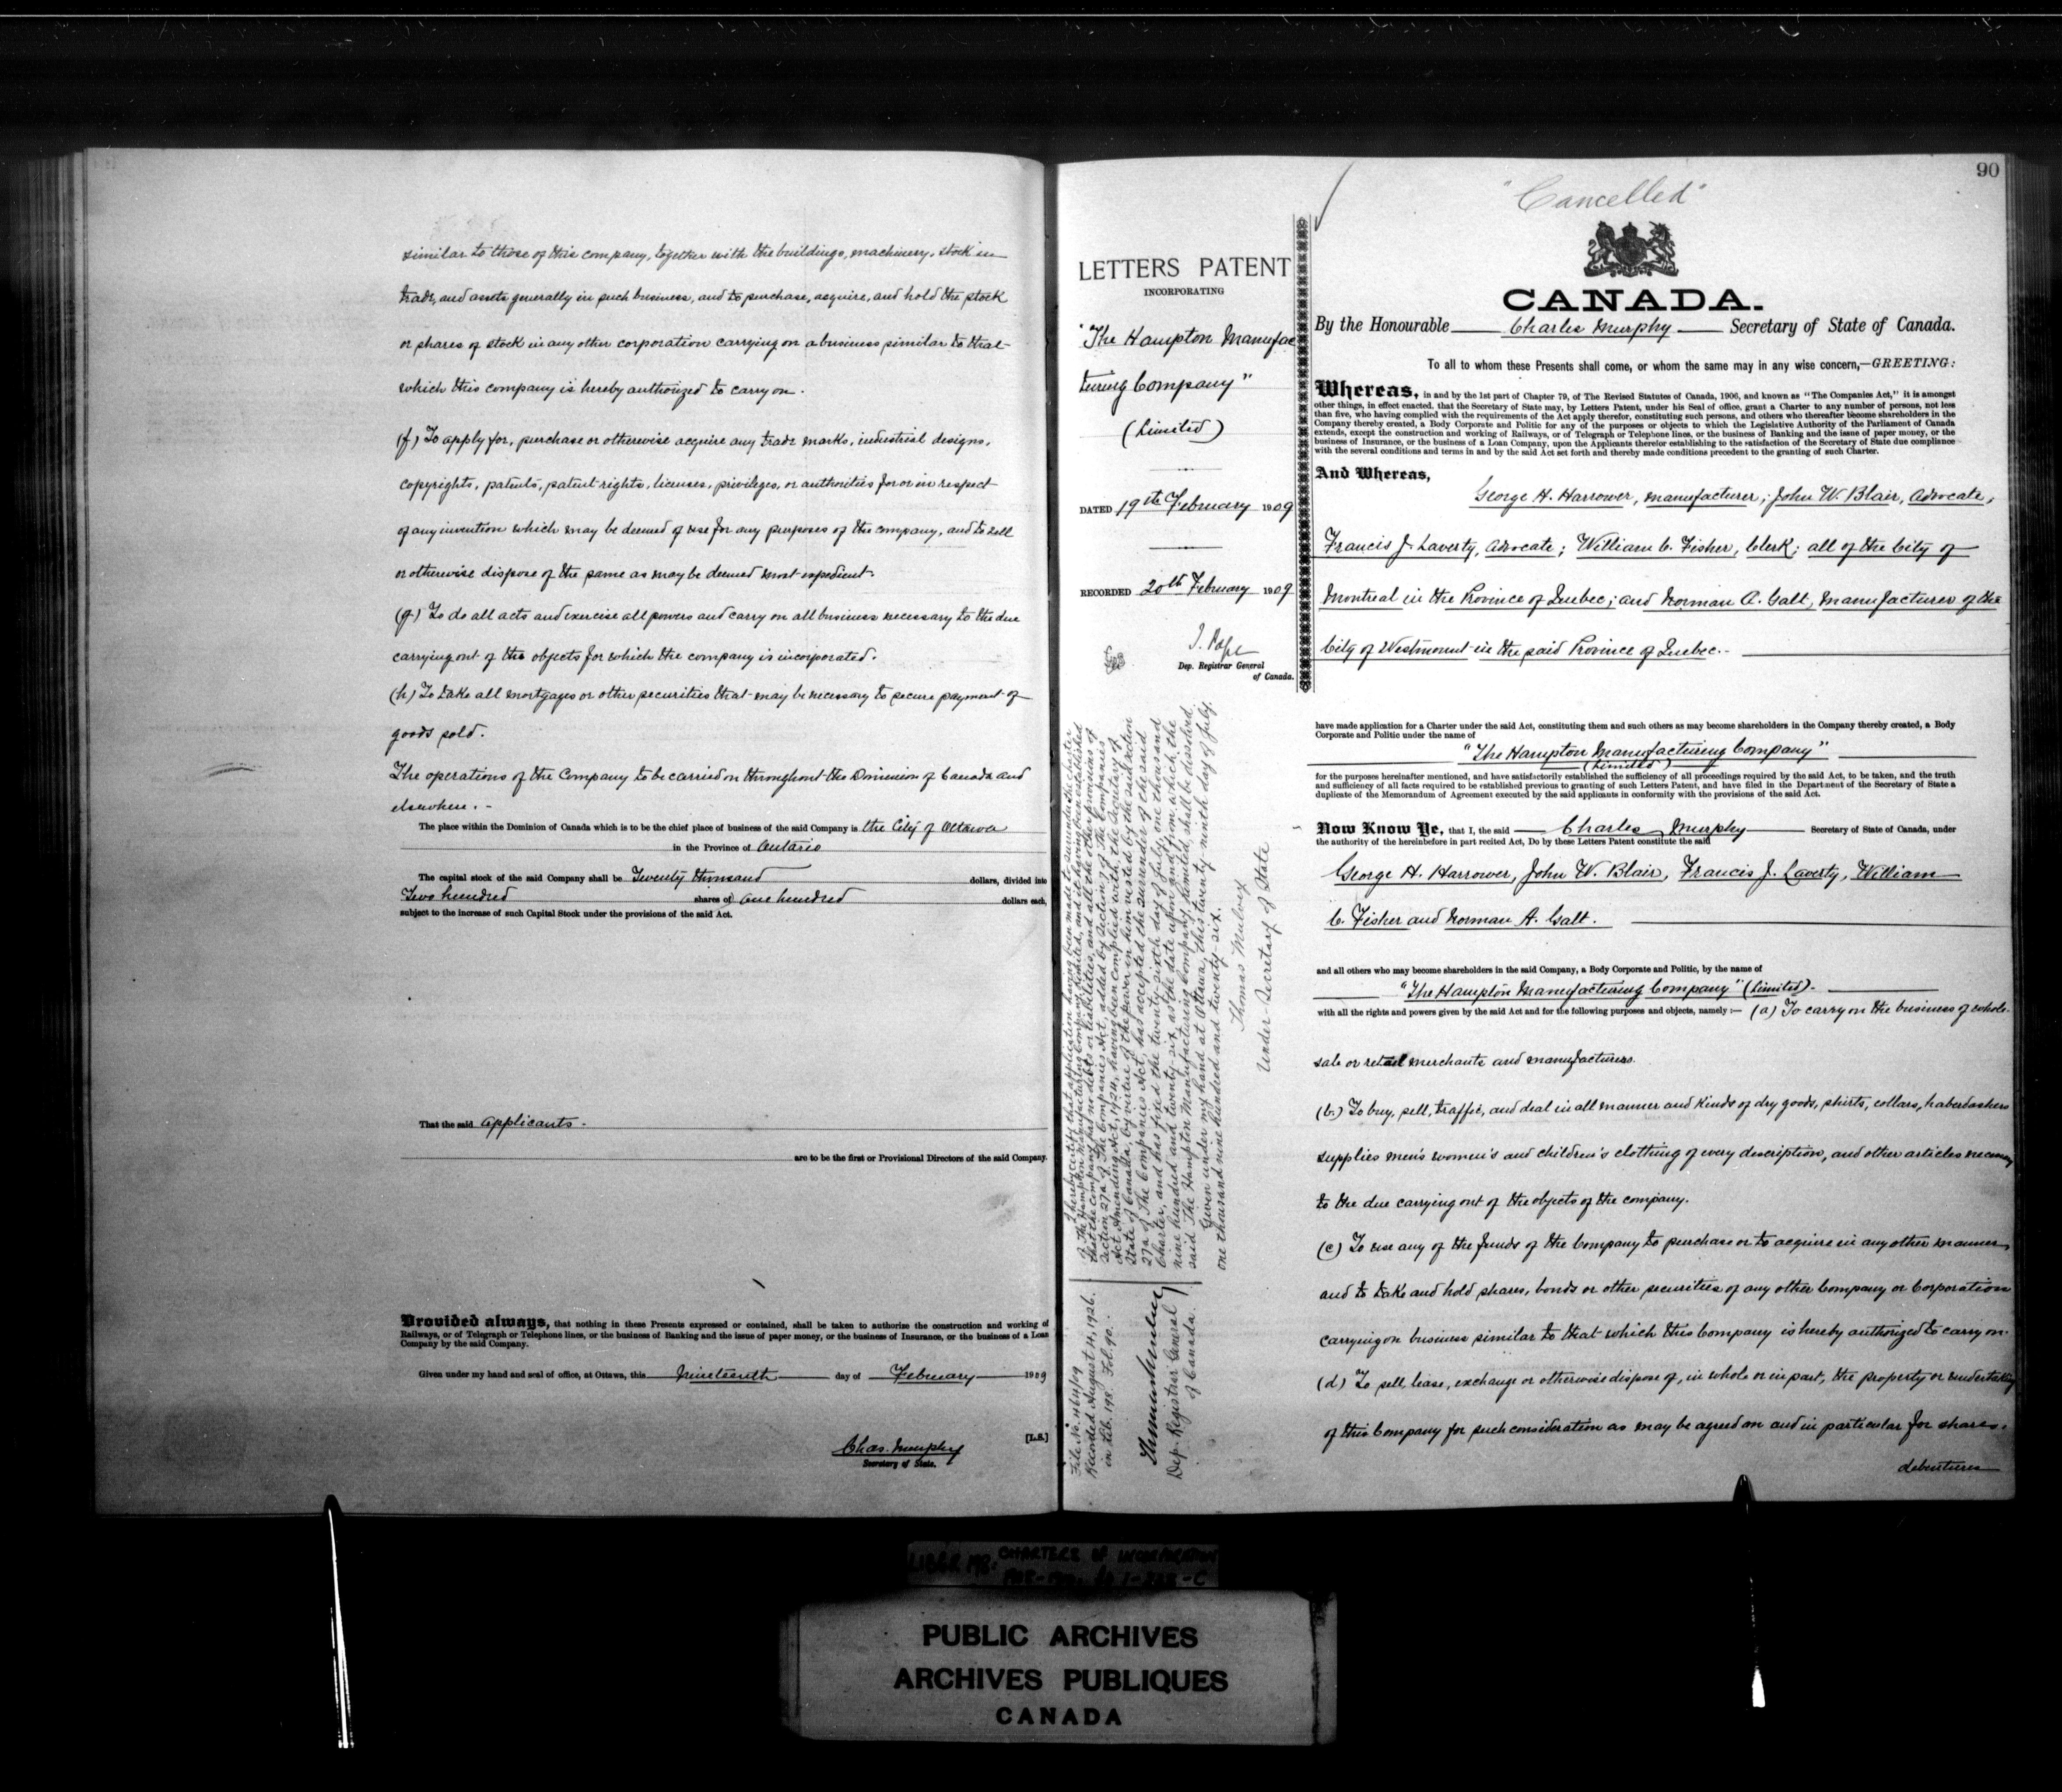 similar to those of this company, together with the buildings, machinery, stock in
trade, and assets generally in such business, and to purchase, acquire, and hold the stock
or shares of stock in any other corporation carrying on a business similar to that
which this company is hereby authorized to carry on.
(f) To apply for, purchase or otherwise acquire any trade marks, industrial designs,
copyrights, patents, patent rights, licenses, privileges, or authorities for or in respect
of any invention which may be deemed of use for any purposes of the company, and to sell
or otherwise dispose of the same as may be deemed most expedient.
(g) To do all acts and exercise all powers and carry on all business necessary to the due
carrying out of the objects for which the company is incorporated.
(h) To take all mortgages or other securities that may be necessary to secure payment of
goods sold.
The operations of the Company to be carried on throughout the Dominion of Canada and
elsewhere. -
The place within the Dominion of Canada which is to be the chief place of business of the said Company is the City of Ottawa
in the Province of Ontario
The capital stock of the said Company shall be Twenty thousand dollars, divided into
Two hundred shares of One hundred dollars each,
subject to the increase of such Capital Stock under the provisions of the said Act.
That the said applicants.
are to be the first or Provisional Directors of the said Company.
Provided always, that nothing in these Presents expressed or contained, shall be taken to authorize the construction and working of
Railways, or of Telegraph or Telephone lines, or the business of Banking and the issue of paper money, or the business of Insurance, or the business of a Loan
Company by the said Company.
Given under my hand and seal of office, at Ottawa, this Nineteenth day of February 1909
[L.S.]
Chas. Murphy
Secretary of State.
90
"Cancelled"
LETTERS PATENT
INCORPORATING
"The Hampton Manufac
turing Company"
(Limited)
DATED 19th February 1909
RECORDED 20th February 1909
J. Pope
Dep. Registrar General
of Canada.
I hereby certify that application having been made to surrender the charter
of The Hampton Manufacturing Company, Limited, and it having been established
that the Company has no debts or liabilities, and all the other provisions of
Section 27a of The Companies Act, added by Section 7 of The Companies
Act Amending Act, 1924, having been complied with, the Secretary of
State of Canada, by virtue of the power in him vested by the said section
27a of The Companies Act, has accepted the surrender of the said
Charter, and has fixed the twenty-sixth day of July, one thousand
nine hundred and twenty-six, as the date upon and from which the
said The Hampton Manufacturing Company, Limited, shall be dissolved.
Given under my hand at Ottawa, this twenty ninth day of July,
one thousand nine hundred and twenty-six.
Thomas Mulvey
Under-Secretary of State
Recorded August 14, 1926.
in Lib. 198. Fol. 90.
Dep. Registrar General
of Canada.
CANADA.
By the Honourable Charles Murphy Secretary of State of Canada.
To all to whom these Presents shall come, or whom the same may in any wise concern,—GREETING:
Whereas, in and by the 1st part of Chapter 79, of The Revised Statutes of Canada, 1906, and known as "The Companies Act," it is amongst
other things, in effect enacted, that the Secretary of State may, by Letters Patent, under his Seal of office, grant a Charter to any number of persons, not less
than five, who having complied with the requirements of the Act apply therefor, constituting such persons, and others who thereafter become shareholders in the
Company thereby created, a Body Corporate and Politic for any of the purposes or objects to which the Legislative Authority of the Parliament of Canada
extends, except the construction and working of Railways, or of Telegraph or Telephone lines, or the business of Banking and the issue of paper money, or the
business of Insurance, or the business of a Loan Company, upon the Applicants therefor establishing to the satisfaction of the Secretary of State due compliance
with the several conditions and terms in and by the said Act set forth and thereby made conditions precedent to the granting of such Charter.
And Whereas,
George H. Harrower, manufacturer; John W. Blair, Advocate,
Francis J. Laverty, Advocate; William C. Fisher, Clerk; all of the City of
Montreal in the Province of Quebec; and Norman A. Galt, manufacturer of the
City of Westmount in the said Province of Quebec. -
have made application for a Charter under the said Act, constituting them and such others as may become shareholders in the Company thereby created, a Body
Corporate and Politic under the name of
"The Hampton Manufacturing Company"
(Limited)
for the purposes hereinafter mentioned, and have satisfactorily established the sufficiency of all proceedings required by the said Act, to be taken, and the truth
and sufficiency of all facts required to be established previous to granting of such Letters Patent, and have filed in the Department of the Secretary of State a
duplicate of the Memorandum of Agreement executed by the said applicants in conformity with the provisions of the said Act.
Now Know Ye, that I, the said Charles Murphy Secretary of State of Canada, under
the authority of the hereinbefore in part recited Act, Do by these Letters Patent constitute the said
George H. Harrower, John W. Blair, Francis J. Laverty, William
C. Fisher and Norman A. Galt.
and all others who may become shareholders in the said Company, a Body Corporate and Politic, by the name of
"The Hampton Manufacturing Company" (Limited). -
with all the rights and powers given by the said Act and for the following purposes and objects, namely :— (a) To carry on the business of whole-
sale or retail merchants and manufacturers.
(b.) To buy, sell, traffic, and deal in all manner and kinds of dry goods, shirts, collars, haberdashers
supplies men's women's and children's clothing of every description, and other articles necessary
to the due carrying out of the objects of the company.
(c) To use any of the funds of the Company to purchase or to acquire in any other manner,
and to take and hold shares, bonds or other securities of any other Company or Corporation
carrying on business similar to that which this Company is hereby authorized to carry on.
(d) To sell, lease, exchange or otherwise dispose of, in whole or in part, the property or undertaking
of this Company for such consideration as may be agreed on and in particular for shares,
debentures
PUBLIC ARCHIVES
ARCHIVES PUBLIQUES
CANADA